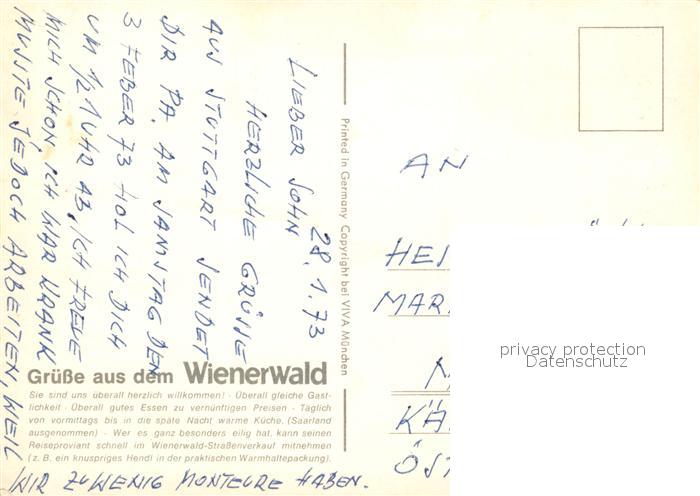 28.1.73
LIEBER SOHN
HERZLICHE GRÜSSE
AUS STUTTGART SENDET
DIR PA. AM SAMSTAG DEN
3 FEBER 73 HOL ICH DICH
UM 1/2 1 UHR AB. ICH FREUE
MICH SCHON. ICH WAR KRANK
MUSSTE JEDOCH ARBEITEN, WEIL
WIR ZU WENIG MONTEURE HABEN.
Grüße aus dem Wienerwald
Sie sind uns überall herzlich willkommen! · Überall gleiche Gast-
lichkeit · Überall gutes Essen zu vernünftigen Preisen · Täglich
von vormittags bis in die späte Nacht warme Küche. (Saarland
ausgenommen) · Wer es ganz besonders eilig hat, kann seinen
Reiseproviant schnell im Wienerwald-Straßenverkauf mitnehmen
(z. B. ein knuspriges Hendl in der praktischen Warmhaltepackung).
Printed in Germany Copyright bei VIVA München
AN
HEI
MAR
KÄ
ÖST
privacy protection
Datenschutz